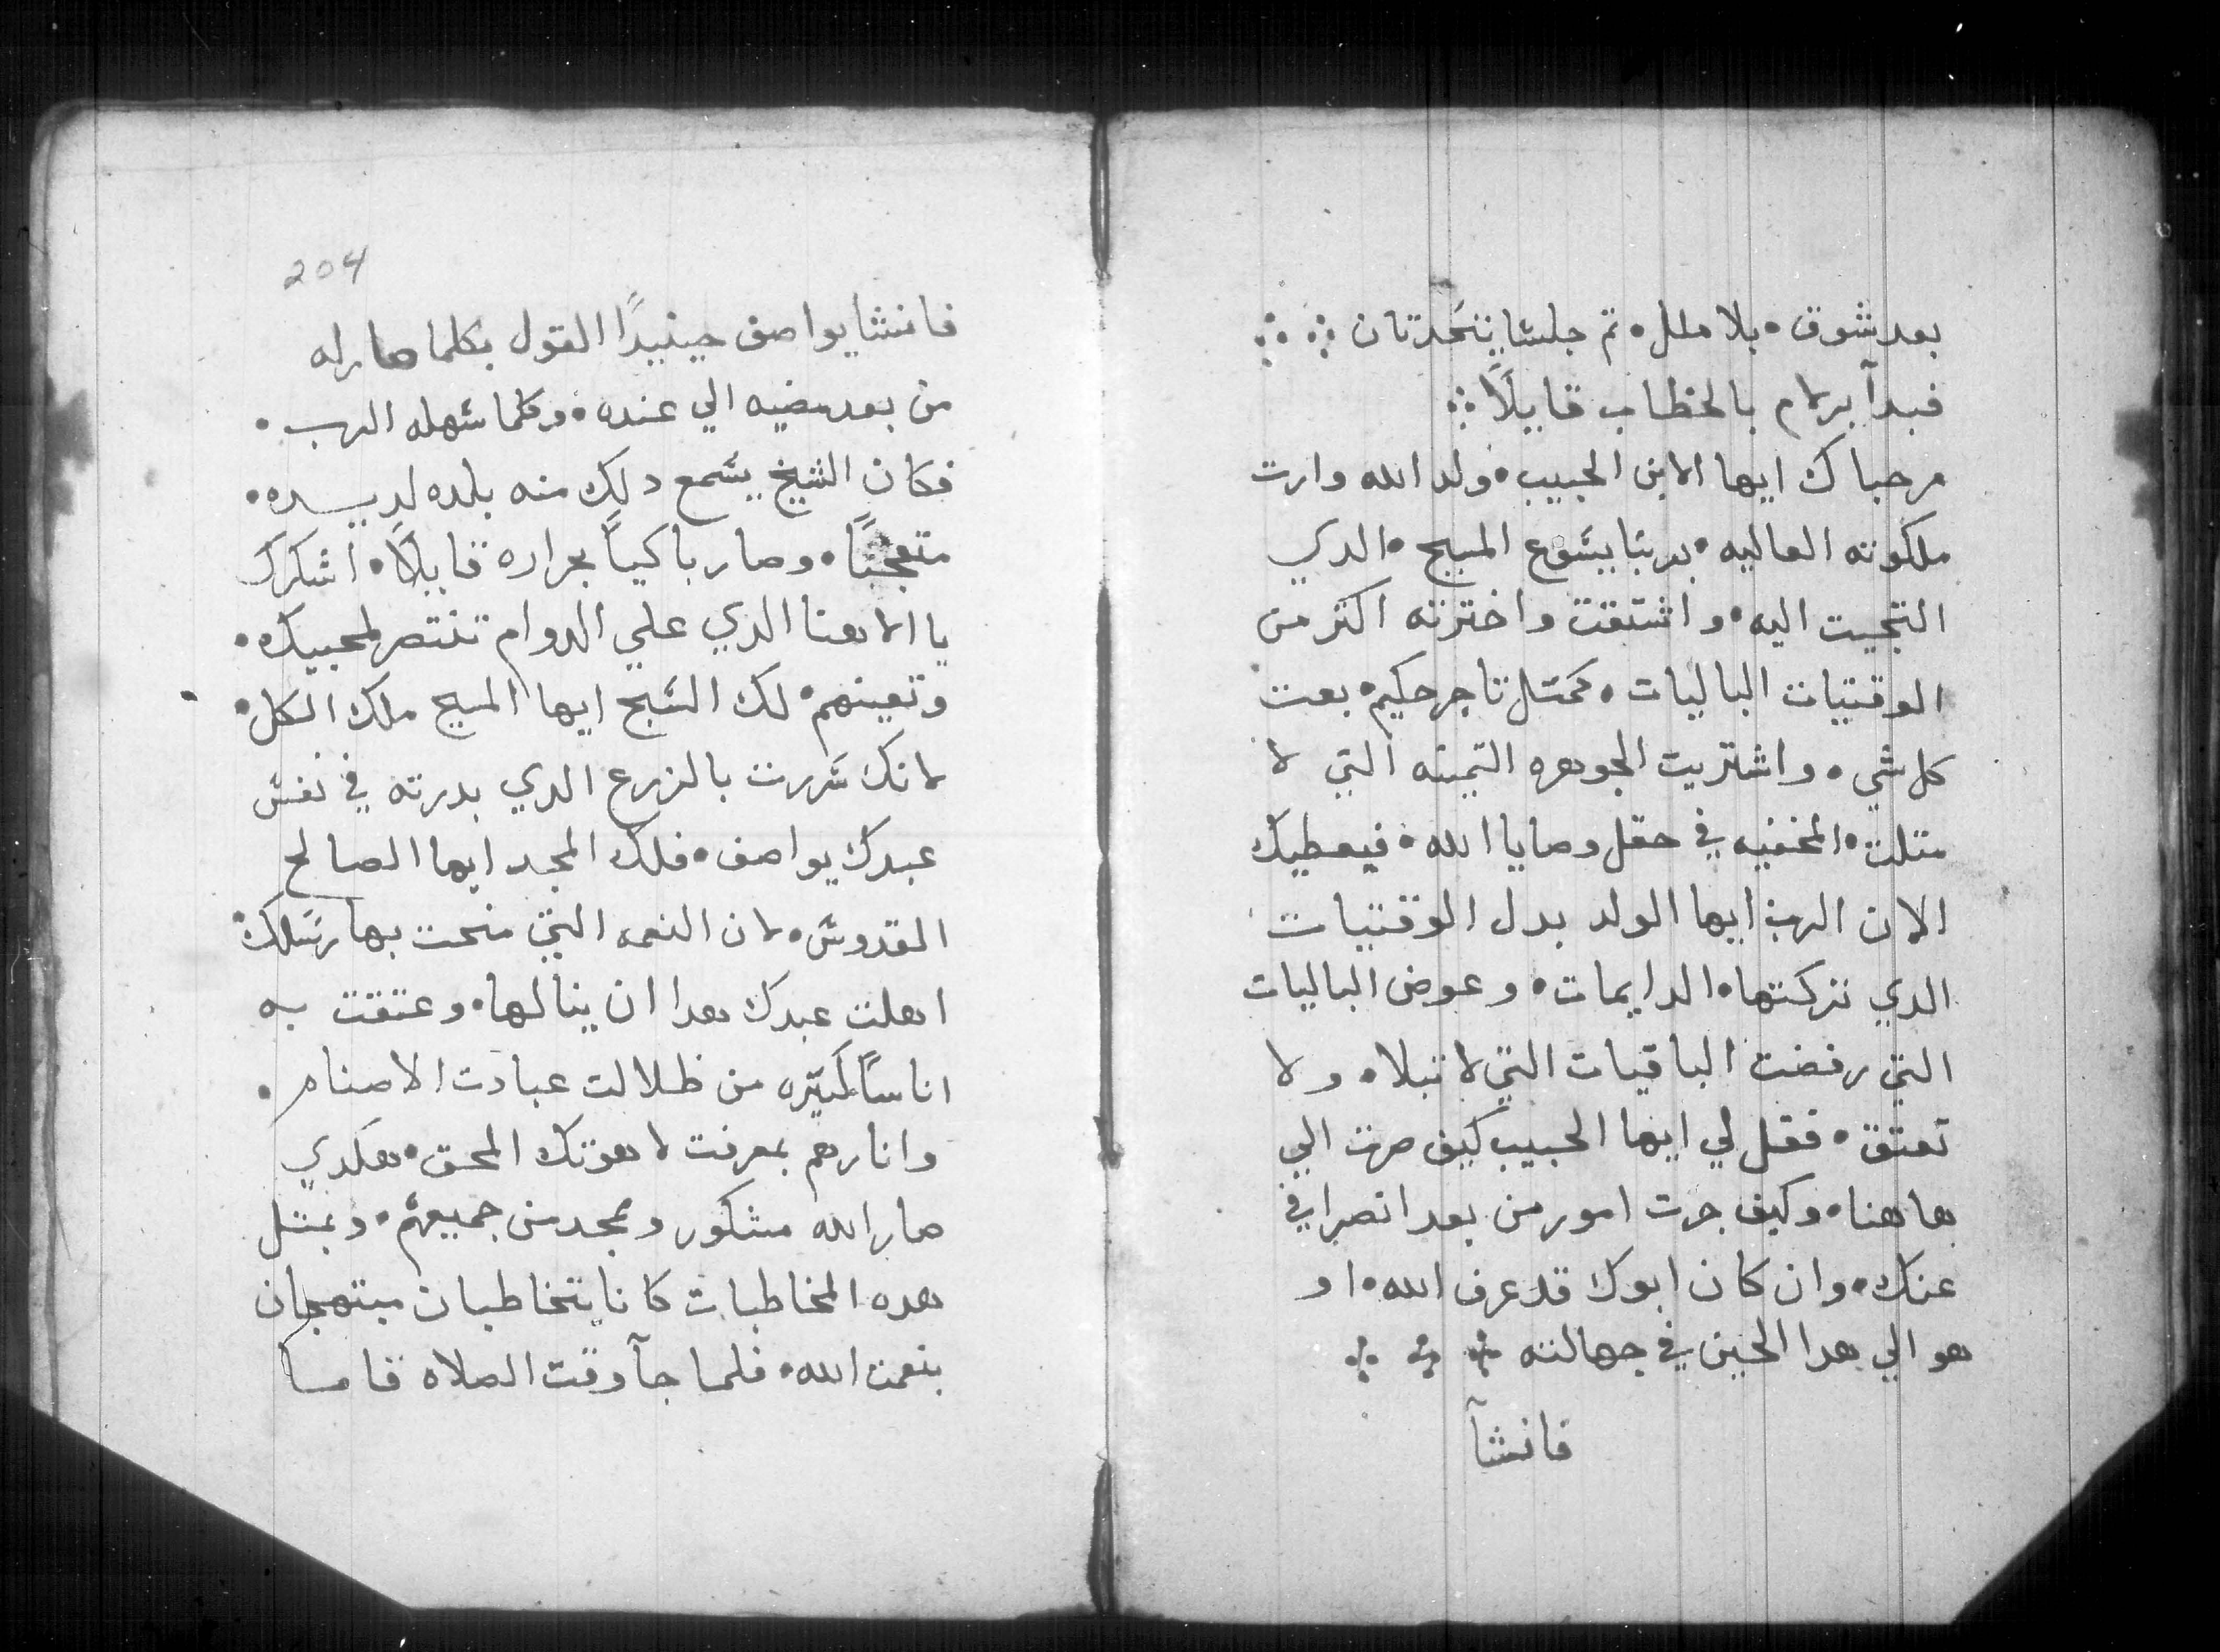 بعد شوق • بلا ملل • تم جلسا يتحدتان ⁘ ⁘
فبدآ برلام بالخطاب قايلاً ⁘
مرحباك ايها الابن الحبيب • ولد الله وارت
ملكوته العاليه • بربنا يسوع المسيح • الدي
التجيت اليه • واشتقت واخترته اكتر من
الوقتيات الباليات • كمتل تاجر حكيم • بعت
كل شي • واشتريت الجوهره التمينه التي لا
متلت • المخفيه في حقل وصايا الله • فيعطيك
الان الرب ايها الولد بدل الوقتيات
الدي تركتها • الدايمات • وعوض الباليات
التي رفضت الباقيات التي لا تبلا • ولا
تعتق • فقل لي ايها الحبيب كيف صرت الي
هاهنا • وكيف جرت امور من بعد انصرافي
عنك • وان كان ابوك قد عرف الله • او
هو الي هدا الحين في جهالته ⁘ ⁘ ⁘
فانشآ
204
فانشا يواصف حينيدًا القول بكلما صار له
من بعد مضيه الي عنده • وكلما سهله الرب •
فكان الشيخ يسمع دلك منه بلده لديده •
متعجبًا • وصار باكياً بحراره قايلاً • اشكرك
يا الاهنا الدي علي الدوام تنتصر لمحبيك •
وتعينهم • لك السبح ايها المسيح ملك الكل •
لانك سررت بالزرع الدي بدرته في نفس
عبدك يواصف • فلك المجد ايها الصالح
القدوس • لان النعمه التي منحت بها رسلك •
اهلت عبدك هدا ان ينالها • وعتقت به
اناساً كتيره من ظلالت عبادت الاصنام •
وانارهم بمعرفت لاهوتك المحق • هكدي
صار الله مشكور وممجد من جميعهم • وبمتل
هده المخاطبات كانا يتخاطبان مبتهجان
بنعمت الله • فلما جآ وقت الصلاه قامسا